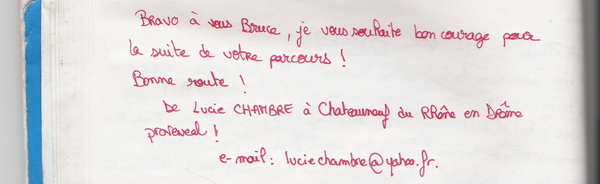 Bravo à vous Bruce, je vous souhaite bon courage pour
la suite de votre parcours !
Bonne route !
De Lucie CHAMBRE à Chateauneuf du Rhône en Drôme
provencal !
e-mail : luciechambre@yahoo.fr.